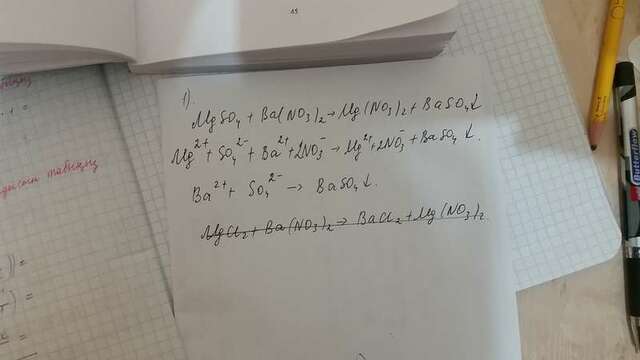 1).
MgSO₄ + Ba(NO₃)₂ → Mg(NO₃)₂ + BaSO₄↓
Mg²⁺ + SO₄²⁻ + Ba²⁺ + 2NO₃⁻ → Mg²⁺ + 2NO₃⁻ + BaSO₄↓.
Ba²⁺ + SO₄²⁻ → BaSO₄↓.
MgCl₂ + Ba(NO₃)₂ → BaCl₂ + Mg(NO₃)₂.
Butterflow